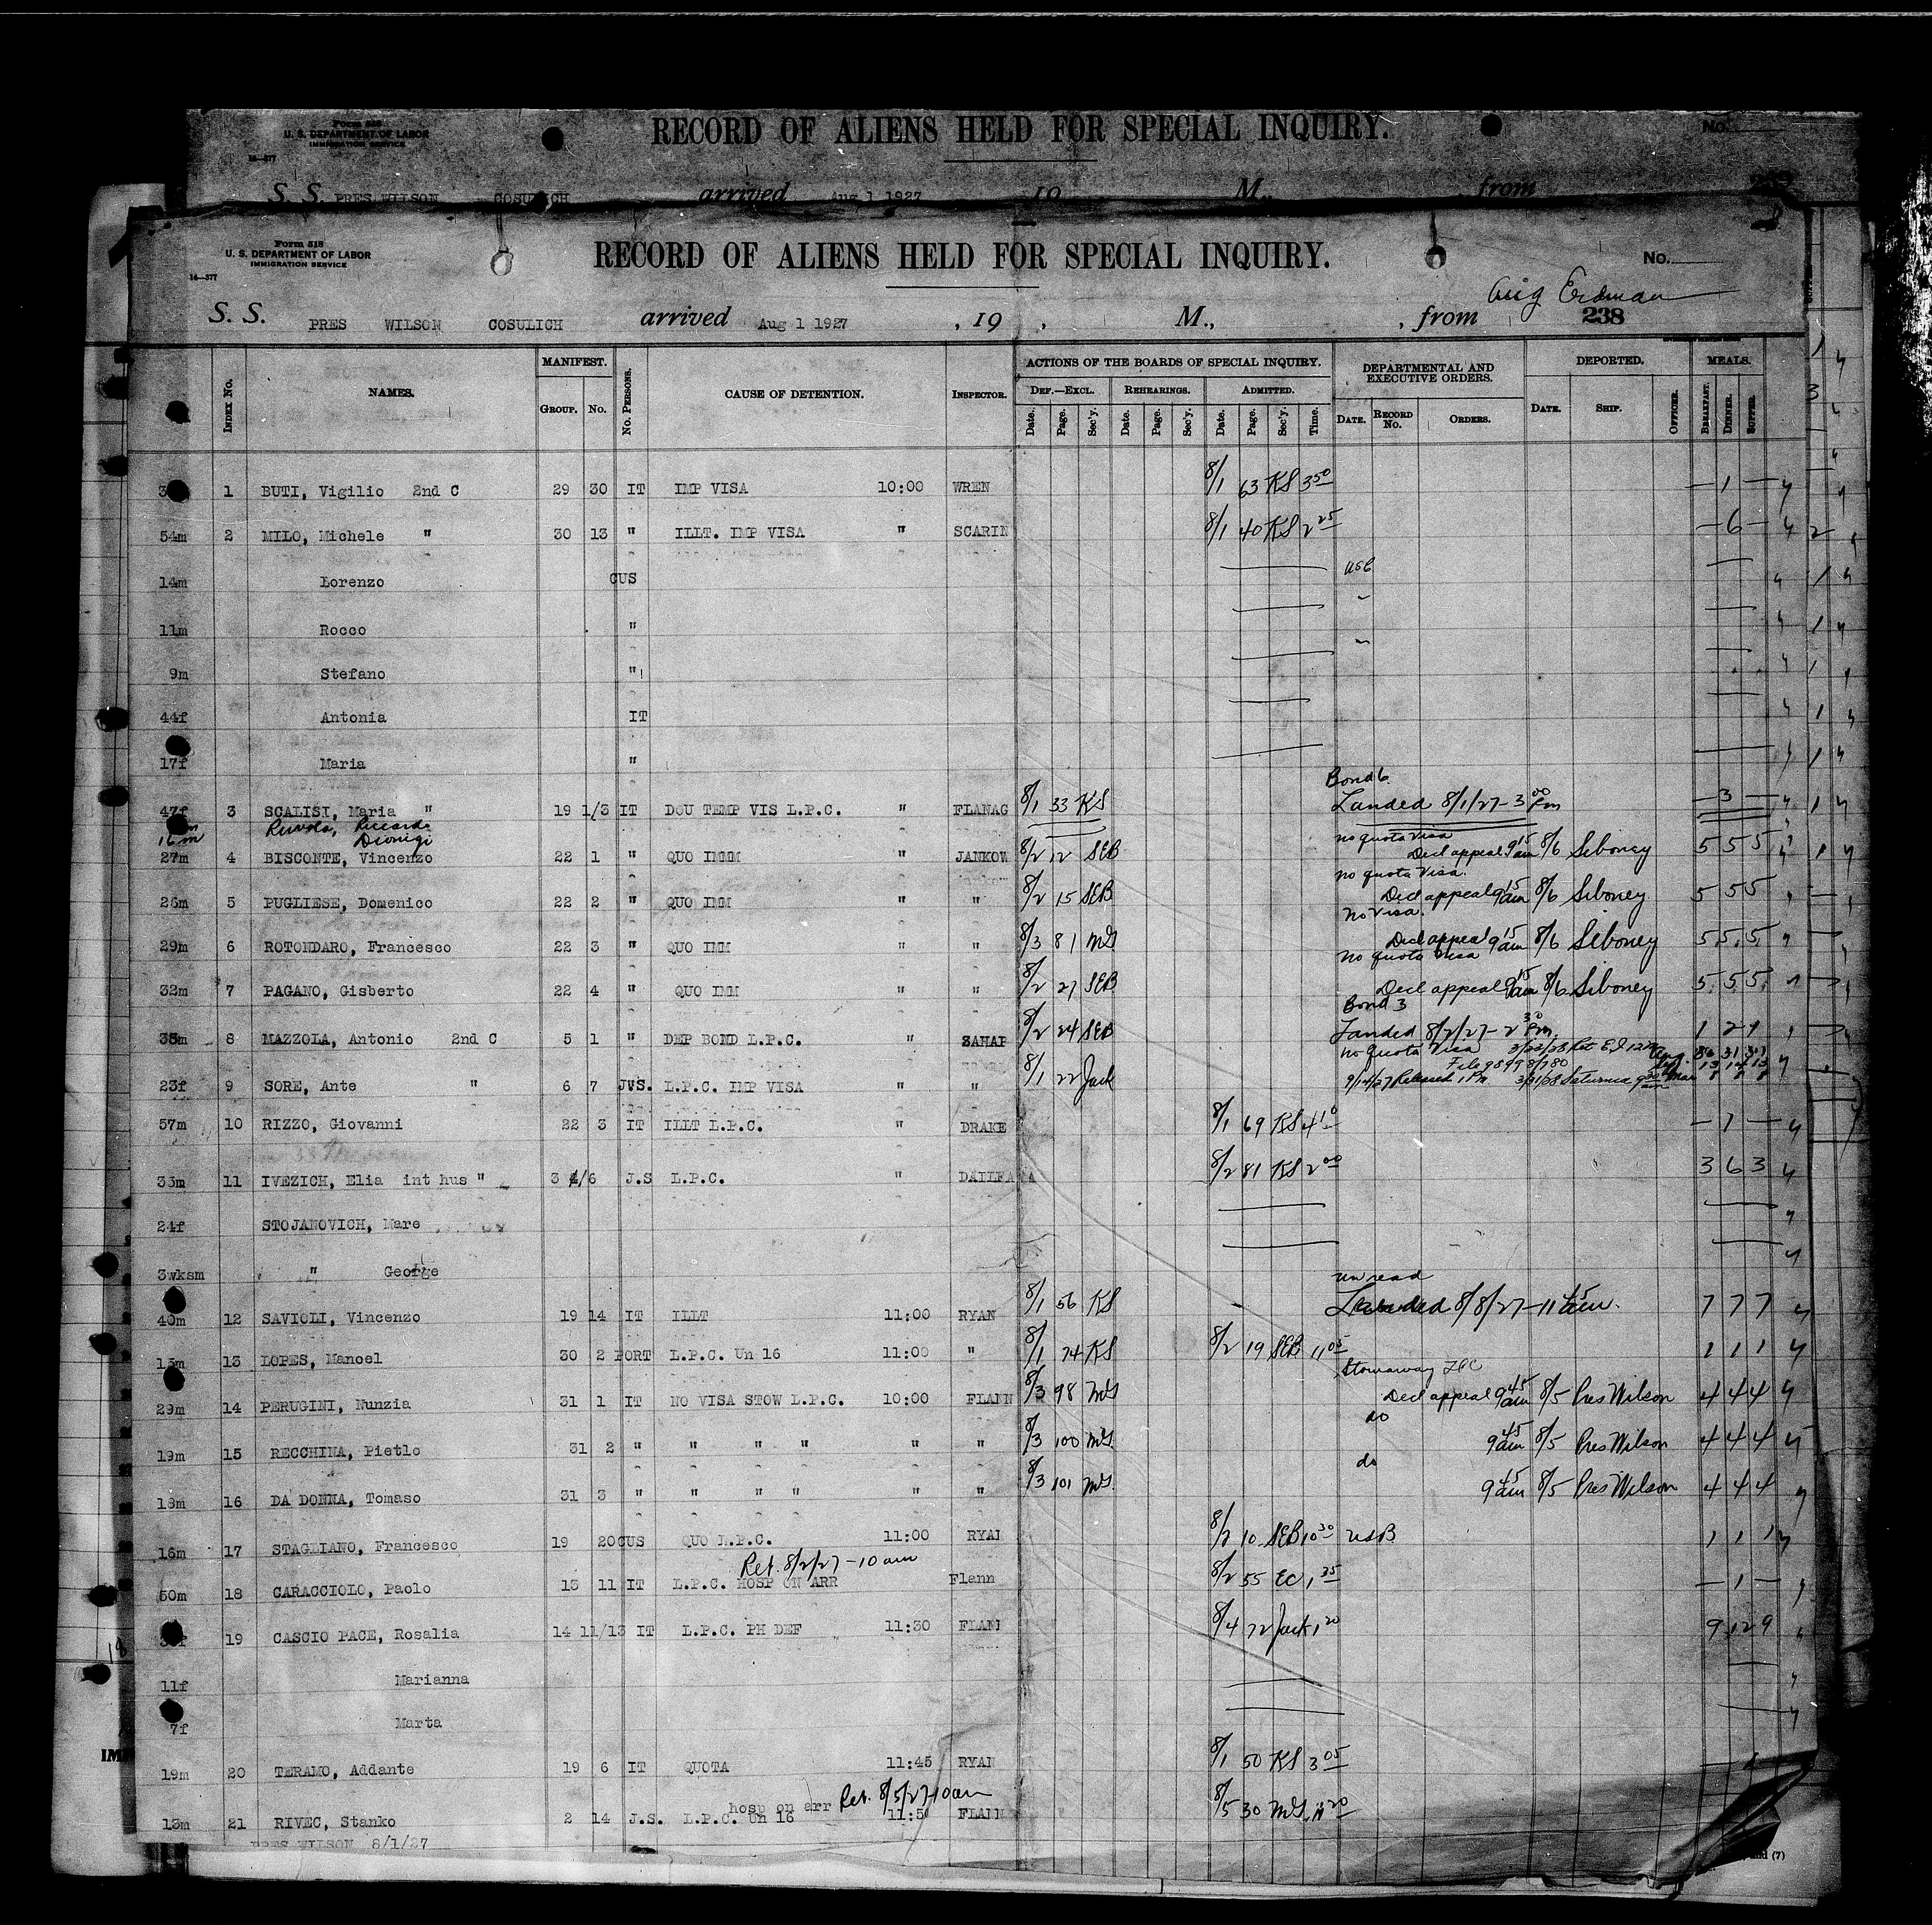 Form 518
U. S. DEPARTMENT OF LABOR
IMMIGRATION SERVICE
14—377
RECORD OF ALIENS HELD FOR SPECIAL INQUIRY.
No.
S. S. PRES WILSON COSULICH arrived Aug 1 1927 19 M., from
Form 518
U. S. DEPARTMENT OF LABOR
IMMIGRATION SERVICE
14—377
RECORD OF ALIENS HELD FOR SPECIAL INQUIRY.
No.
Aug Erdman
S. S. PRES WILSON COSULICH arrived Aug 1 1927 , 19 , M., , from 238
INDEX No. NAMES. MANIFEST. GROUP. No. No. PERSONS. CAUSE OF DETENTION. INSPECTOR. ACTIONS OF THE BOARDS OF SPECIAL INQUIRY. DEPARTMENTAL AND EXECUTIVE ORDERS. DEPORTED. MEALS.
DEF.—EXCL. REHEARINGS. ADMITTED.
Date. Page. Sec'y. Date. Page. Sec'y. Date. Page. Sec'y. Time. DATE. RECORD No. ORDERS. DATE. SHIP. OFFICER. BREAKFAST. DINNER. SUPPER.
1 BUTI, Vigilio 2nd C 29 30 IT IMP VISA 10:00 WREN 8/1 63 KS 3 50 — 1 —
54m 2 MILO, Michele " 30 13 " ILLT. IMP VISA " SCARIN 8/1 40 KS 2 25 — 6 —
14m Lorenzo CUS USC
11m Rocco "
9m Stefano "
44f Antonia IT
17f Maria "
Bond 6
47f 3 SCALISI, Maria " 19 1/3 IT DOU TEMP VIS L.P.C. " FLANAG 8/1 33 KS Landed 8/1/27 - 3 00 Pm — 3 —
Riccardo
16m Dionigi
no quota visa
27m 4 BISCONTE, Vincenzo 22 1 " QUO IMMM " JANKOW 8/2 12 SEB Decl appeal 9 15 am 8/6 Siboney 5 5 5
no quota visa.
26m 5 PUGLIESE, Domenico 22 2 " QUO IMM " " 8/2 15 SEB Decl appeal 9 15 am 8/6 Siboney 5 5 5
no visa.
29m 6 ROTONDARO, Francesco 22 3 " QUO IMM " " 8/3 81 MG Decl appeal 9 15 am 8/6 Siboney 5 5 5
no quota visa
32m 7 PAGANO, Gisberto 22 4 " QUO IMM " " 8/2 27 SEB Decl appeal 9 15 am 8/6 Siboney 5 5 5
Bond 3
38m 8 MAZZOLA, Antonio 2nd C 5 1 " DEP BOND L.P.C. " ZAHAP 8/2 24 SEB Landed 8/2/27 - 2 30 Pm 1 2 1
no quota Visa
File 98998/780
23f 9 SORE, Ante " 6 7 JVS. L.P.C. IMP VISA " " 8/1 22 Jack 9/14/27 Released 1 Pm 3/31/28 Saturnia
57m 10 RIZZO, Giovanni 22 3 IT ILLT L.P.C. " DRAKE 8/1 69 KS 4 10 — 1 —
33m 11 IVEZICH, Elia int hus " 3 4/6 J.S L.P.C. " 8/2 81 KS 2 00 3 6 3
24f STOJANOVICH, Mare
3wksm " George
un read
40m 12 SAVIOLI, Vincenzo 19 14 IT ILLT 11:00 RYAN 8/1 56 KS Landed 8/8/27 - 11 45 am. 7 7 7
15m 13 LOPES, Manoel 30 2 PORT L.P.C. Un 16 11:00 " 8/1 74 KS 8/2 19 SEB 11 05 1 1 1
Stowaway LPC
29m 14 PERUGINI, Nunzia 31 1 IT NO VISA STOW L.P.C. 10:00 FLANN 8/3 98 MG Decl appeal 9 45 am 8/5 Pres Wilson 4 4 4
do
19m 15 RECCHINA, Pietlo 31 2 " " " " " " 8/3 100 MG 9 45 am 8/5 Pres Wilson 4 4 4
do
18m 16 DA DONNA, Tomaso 31 3 " " " " " " 8/3 101 MG 9 45 am 8/5 Pres Wilson 4 4 4
16m 17 STAGLIANO, Francesco 19 20 CUS QUO L.P.C. 11:00 RYAN 8/2 10 SEB 10 30 USB 1 1 1
Ret. 8/2/27 - 10 am
50m 18 CARACCIOLO, Paolo 13 11 IT L.P.C. HOSP ON ARR Flann 8/2 55 EC 1 35 — 1 —
19 CASCIO PACE, Rosalia 14 11/13 IT L.P.C. PH DEF 11:30 FLANN 8/4 72 Jack 1 20 9 12 9
11f Marianna
7f Marta
19m 20 TERAMO, Addante 19 6 IT QUOTA 11:45 RYAN 8/1 50 KS 3 05
hosp on arr Ret. 8/5/27 10 am
13m 21 RIVEC, Stanko 2 14 J.S. L.P.C. Un 16 11:50 FLANN 8/5 30 MG 11 20
PRES WILSON 8/1/27